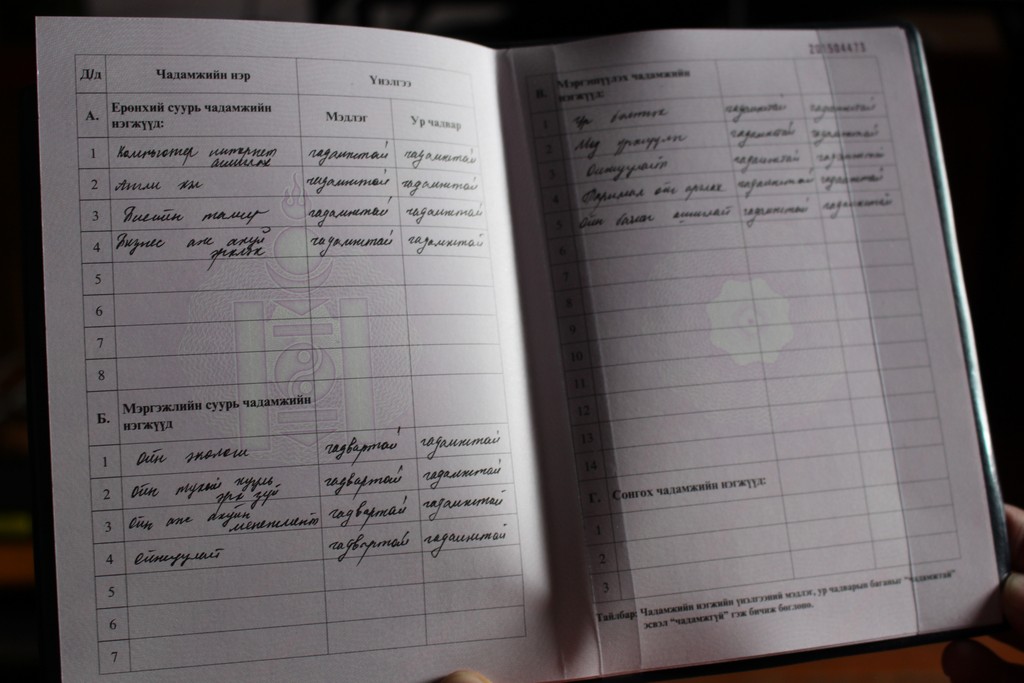 Д/д Чадамжийн нэр Үнэлгээ
А. Ерөнхий суурь чадамжийн нэгжүүд: Мэдлэг Ур чадвар
1 Компьютер интернет ашиглах чадамжтай чадамжтай
2 Англи хэл чадамжтай чадамжтай
3 Биеийн тамир чадамжтай чадамжтай
4 Бизнес аж ахуй эрхлэх чадамжтай чадамжтай
5
6
7
8
Б. Мэргэжлийн суурь чадамжийн нэгжүүд
1 Ойн экологи чадвартай чадамжтай
2 Ойн тухай хууль эрх зүй чадвартай чадамжтай
3 Ойн аж ахуйн менежмент чадвартай чадамжтай
4 Ойжуулалт чадвартай чадамжтай
5
6
7
201504473
В. Мэргэшүүлэх чадамжийн нэгжүүд:
1 Үр бэлтгэх чадамжтай чадамжтай
2 Мод үржүүлэг чадамжтай чадамжтай
3 Ойжуулалт чадамжтай чадамжтай
4 чадамжтай чадамжтай
5 Ойн баялаг ашиглалт чадамжтай чадамжтай
6
7
8
9
10
11
12
13
14
Г. Сонгох чадамжийн нэгжүүд:
1
2
3
Тайлбар: Чадамжийн нэгжийн үнэлгээний мэдлэг, ур чадварын баганыг "чадамжтай"
эсвэл "чадамжгүй" гэж бичиж бөглөнө.